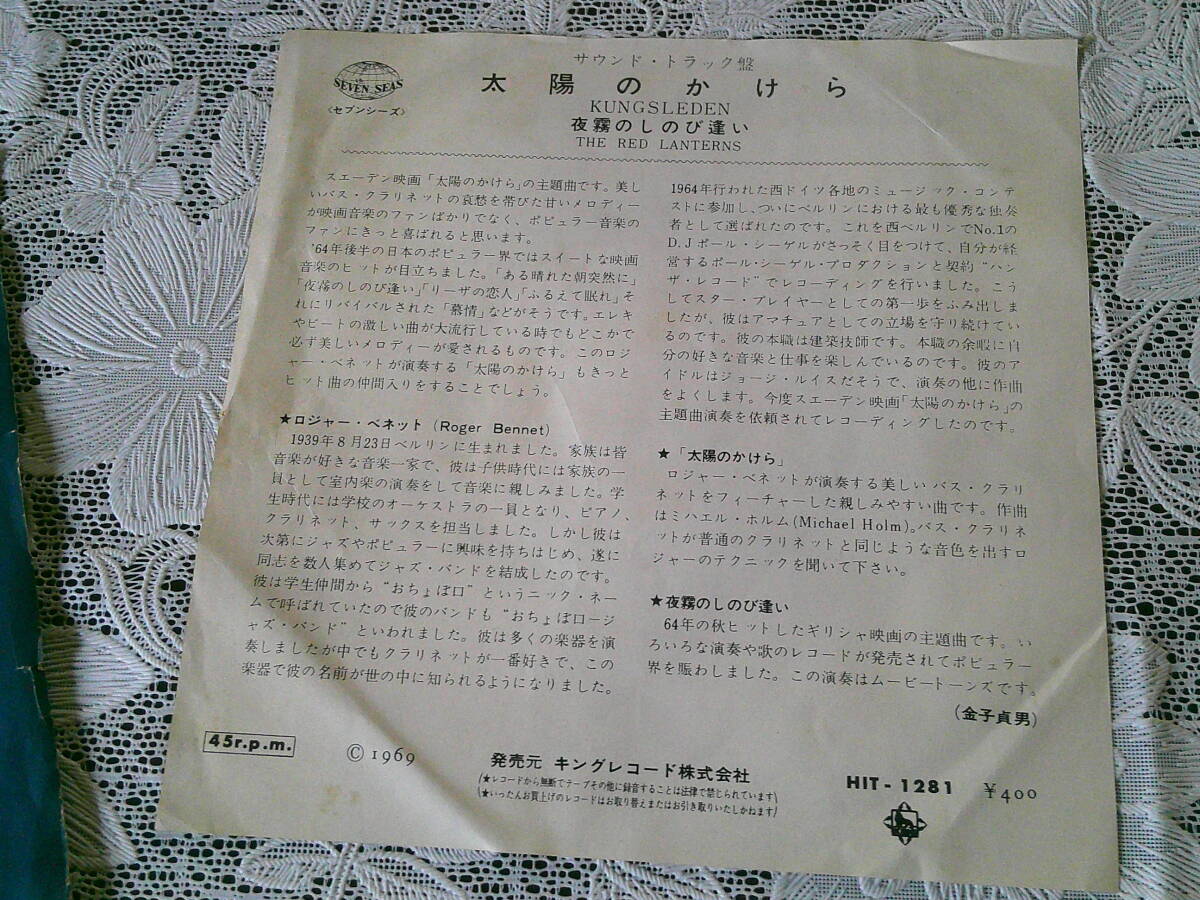 サウンド・トラック盤
SEVEN SEAS
〈セブンシーズ〉
太陽のかけら
KUNGSLEDEN
夜霧のしのび逢い
THE RED LANTERNS
スエーデン映画「太陽のかけら」の主題曲です。美し
いバス・クラリネットの哀愁を帯びた甘いメロディー
が映画音楽のファンばかりでなく、ポピュラー音楽の
ファンにきっと喜ばれると思います。
'64年後半の日本のポピュラー界ではスイートな映画
音楽のヒットが目立ちました。「ある晴れた朝突然に」
「夜霧のしのび逢い」「リーザの恋人」「ふるえて眠れ」そ
れにリバイバルされた「慕情」などがそうです。エレキ
やビートの激しい曲が大流行している時でもどこかで
必ず美しいメロディーが愛されるものです。このロジ
ャー・ベネットが演奏する「太陽のかけら」もきっと
ヒット曲の仲間入りをすることでしょう。
★ロジャー・ベネット (Roger Bennet)
1939年8月23日ベルリンに生まれました。家族は皆
音楽が好きな音楽一家で、彼は子供時代には家族の一
員として室内楽の演奏をして音楽に親しみました。学
生時代には学校のオーケストラの一員となり、ピアノ、
クラリネット、サックスを担当しました。しかし彼は
次第にジャズやポピュラーに興味を持ちはじめ、遂に
同志を数人集めてジャズ・バンドを結成したのです。
彼は学生仲間から“おちょぼ口”というニック・ネー
ムで呼ばれていたので彼のバンドも“おちょぼ口ージ
ャズ・バンド”といわれました。彼は多くの楽器を演
奏しましたが中でもクラリネットが一番好きで、この
楽器で彼の名前が世の中に知られるようになりました。
1964年行われた西ドイツ各地のミュージック・コンテ
ストに参加し、ついにベルリンにおける最も優秀な独奏
者として選ばれたのです。これを西ベルリンでNo.1の
D.Jポール・シーゲルがさっそく目をつけて、自分が経
営するポール・シーゲル・プロダクションと契約“ハン
ザ・レコード”でレコーディングを行いました。こう
してスター・プレイヤーとしての第一歩をふみ出しま
したが、彼はアマチュアとしての立場を守り続けてい
るのです。彼の本職は建築技師です。本職の余暇に自
分の好きな音楽と仕事を楽しんでいるのです。彼のア
イドルはジョージ・ルイスだそうで、演奏の他に作曲
をよくします。今度スエーデン映画「太陽のかけら」の
主題曲演奏を依頼されてレコーディングしたのです。
★「太陽のかけら」
ロジャー・ベネットが演奏する美しいバス・クラリ
ネットをフィーチャーした親しみやすい曲です。作曲
はミハエル・ホルム(Michael Holm)。バス・クラリネ
ットが普通のクラリネットと同じような音色を出すロ
ジャーのテクニックを聞いて下さい。
★夜霧のしのび逢い
64年の秋ヒットしたギリシャ映画の主題曲です。い
ろいろな演奏や歌のレコードが発売されてポピュラー
界を賑わしました。この演奏はムービートーンズです。
(金子貞男)
45r.p.m.
© 1969
発売元 キングレコード株式会社
(★レコードから無断でテープその他に録音することは法律で禁じられています)
(★いったんお買上げのレコードはお取り替えまたはお引き取りいたしかねます)
HIT-1281
¥400